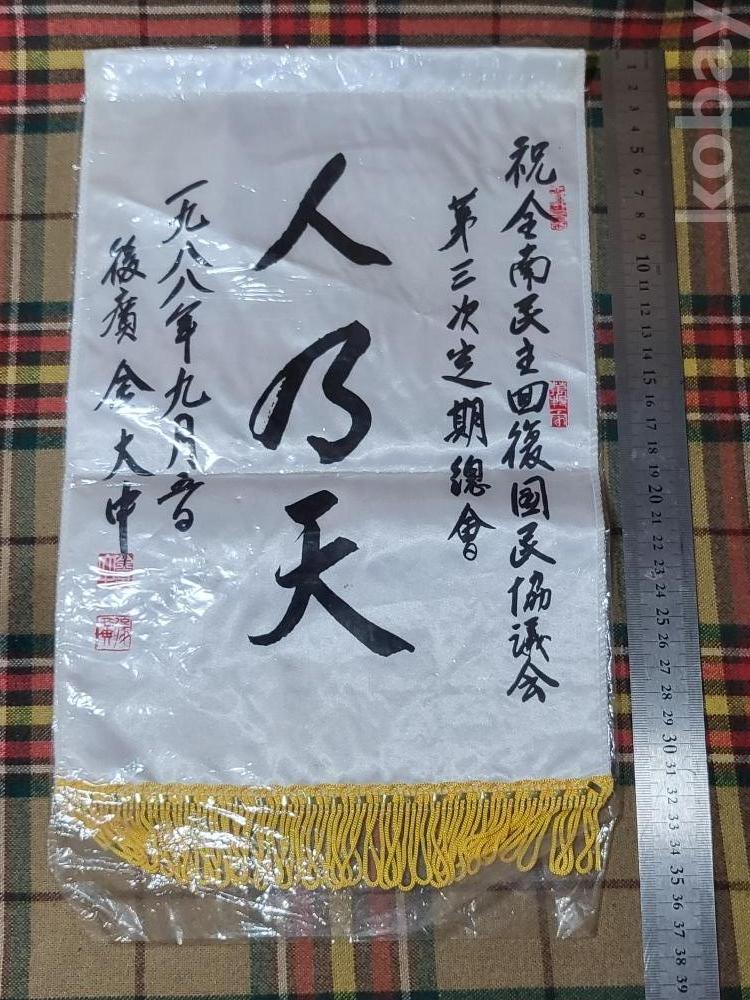 祝全南民主回復國民協議会
第三次定期總會
人乃天
一九八八年九月五日
後廣 金大中
kobay
1 2 3 4 5 6 7 8 9 10 11 12 13 14 15 16 17 18 19 20 21 22 23 24 25 26 27 28 29 30 31 32 33 34 35 36 37 38 39